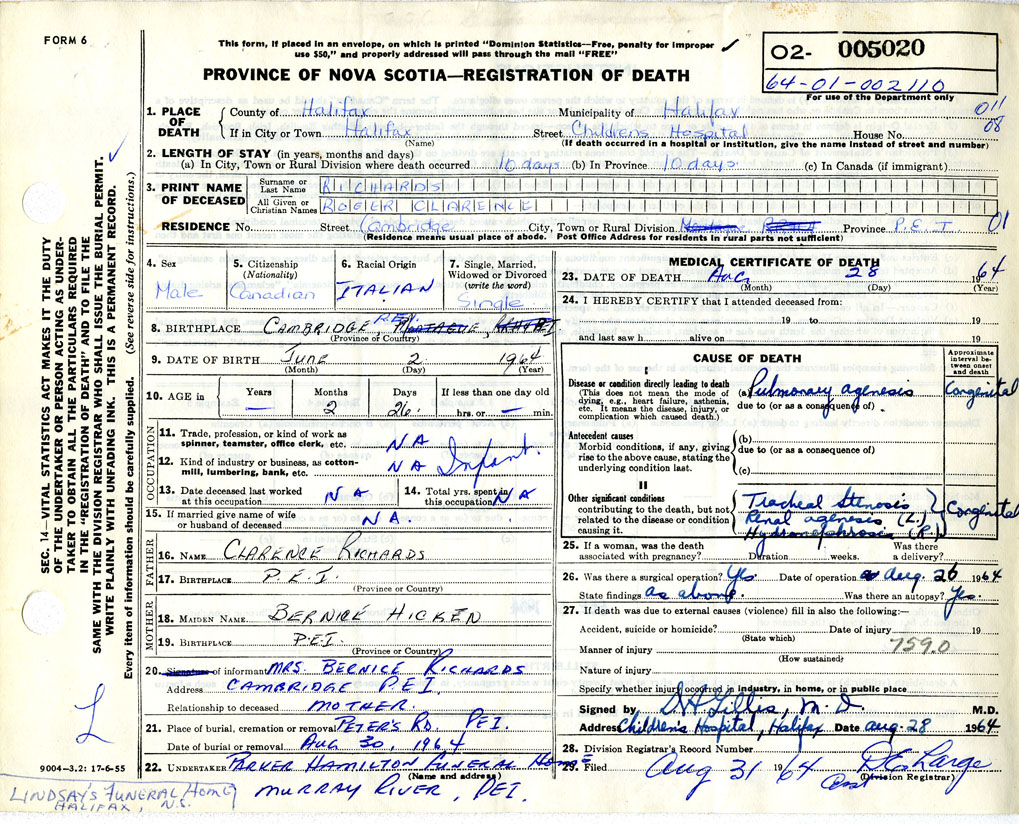 FORM 6
This form, if placed in an envelope, on which is printed "Dominion Statistics—Free, penalty for improper
use $50," and properly addressed will pass through the mail "FREE"
PROVINCE OF NOVA SCOTIA—REGISTRATION OF DEATH
02- 005020
64-01-002110
For use of the Department only
1. PLACE OF DEATH County of Halifax Municipality of Halifax 011
If in City or Town Halifax Street Childrens Hospital House No. 08
(Name) (If death occurred in a hospital or institution, give the name instead of street and number)
2. LENGTH OF STAY (in years, months and days)
(a) In City, Town or Rural Division where death occurred 10 days (b) In Province 10 days (c) In Canada (if immigrant)
3. PRINT NAME OF DECEASED Surname or Last Name RICHARDS
All Given or Christian Names ROGER CLARENCE
RESIDENCE No. Street Cambridge City, Town or Rural Division Province P.E.I. 01
(Residence means usual place of abode. Post Office Address for residents in rural parts not sufficient)
4. Sex 5. Citizenship 6. Racial Origin 7. Single, Married,
(Nationality) Widowed or Divorced
(write the word)
Male Canadian ITALIAN Single
8. BIRTHPLACE CAMBRIDGE, P.E.I.
(Province or Country)
9. DATE OF BIRTH June 2 1964
(Month) (Day) (Year)
10. AGE in Years Months Days If less than one day old
— 2 26 hrs. or — min.
OCCUPATION
11. Trade, profession, or kind of work as
spinner, teamster, office clerk, etc. NA
12. Kind of industry or business, as cotton-
mill, lumbering, bank, etc. NA Infant.
13. Date deceased last worked
at this occupation NA
14. Total yrs. spent in
this occupation NA
15. If married give name of wife
or husband of deceased NA.
FATHER
16. NAME CLARENCE RICHARDS
17. BIRTHPLACE P.E.I.
(Province or Country)
MOTHER
18. MAIDEN NAME BERNICE HICKEN
19. BIRTHPLACE P.E.I.
(Province or Country)
20. Signature of informant MRS. BERNICE RICHARDS
Address CAMBRIDGE P.E.I.
Relationship to deceased MOTHER.
21. Place of burial, cremation or removal PETER'S RD. PEI.
Date of burial or removal AUG 30, 1964
22. UNDERTAKER PARKER HAMILTON FUNERAL HOME
(Name and address)
MURRAY RIVER, PEI.
9004-3.2: 17-6-55
LINDSAY'S FUNERAL HOME
HALIFAX, N.S.
SEC. 14—VITAL STATISTICS ACT MAKES IT THE DUTY
OF THE UNDERTAKER OR PERSON ACTING AS UNDER-
TAKER TO OBTAIN ALL THE PARTICULARS REQUIRED
IN THE "REGISTRATION OF DEATH" AND TO FILE THE
SAME WITH THE DIVISION REGISTRAR WHO SHALL ISSUE THE BURIAL PERMIT.
WRITE PLAINLY WITH UNFADING INK. THIS IS A PERMANENT RECORD.
Every item of information should be carefully supplied. (See reverse side for instructions.)
L
MEDICAL CERTIFICATE OF DEATH
23. DATE OF DEATH Aug 28 1964
(Month) (Day) (Year)
24. I HEREBY CERTIFY that I attended deceased from:
19 to 19
and last saw h alive on 19
CAUSE OF DEATH
Approximate interval between onset and death
I
Disease or condition directly leading to death
(This does not mean the mode of
dying, e.g., heart failure, asthenia,
etc. It means the disease, injury, or
complication which caused death.)
(a) Pulmonary agenesis Congenital
due to (or as a consequence of)
Antecedent causes
Morbid conditions, if any, giving
rise to the above cause, stating the
underlying condition last.
(b)
due to (or as a consequence of)
(c)
II
Other significant conditions
contributing to the death, but not
related to the disease or condition
causing it.
Tracheal Stenosis
Renal agenesis (L.) Congenital
Hydronephrosis (R.)
25. If a woman, was the death Was there
associated with pregnancy? Duration weeks. a delivery?
26. Was there a surgical operation? Yes. Date of operation Aug. 26 1964
State findings as above. Was there an autopsy? Yes.
27. If death was due to external causes (violence) fill in also the following:—
Accident, suicide or homicide? Date of injury 19
(State which)
759.0
Manner of injury
(How sustained)
Nature of injury
Specify whether injury occurred in industry, in home, or in public place
Signed by D.A. Gillis, M.D. M.D.
Address Children's Hospital, Halifax Date Aug-28 1964
28. Division Registrar's Record Number
29. Filed Aug 31 1964 Large
(Division Registrar)